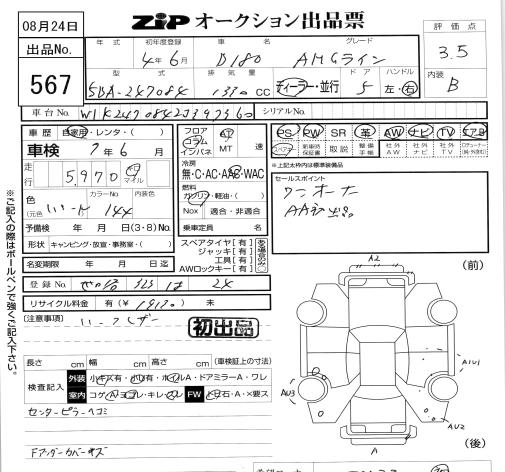 08月24日
ZIP オークション出品票
評価点
3.5
出品No.
567
年式
初年度登録
車名
グレード
4年6月
D180
AMGライン
型式
排気量
ドア
ハンドル
内装
5BA-247084
1330 CC
ディーラー・並行
5
左・右
B
車台No.
W1K2470842J397360
シリアルNo.
車歴
自家用・レンタ・( )
車検
7年6月
走行
5,970
マイル
色
(元色
カラーNo.
144
内装色
予備検
年 月 日(3・8)No.
形状
キャンピング・放宣・事務室・( )
名変期限
年 月 日迄
登録No.
リサイクル料金
有(¥
)
未
(注意事項)
初出品
フロア
コラム
インパネ
AT
MT
速
冷房
無・C・AC・AAC・WAC
燃料
ガソリン・軽油・( )
Nox
適合・非適合
乗車定員
名
スペアタイヤ[有]
ジャッキ[有]
工具[有]
AWロックキー[有]
PS
PW
SR
革
AW
ナビ
TV
エアB
スペアキー
新車時保証書
取説
整備手帳
社外AW
社外ナビ
社外TV
*上記太わ内は標準装備品
セールスポイント
ワンオーナー
AA初出品
※ご記入の際はボールペンで強くご記入下さい。
長さ
cm
幅
cm
高さ
cm
(車検証上の寸法)
検査記入
外装
小キズ有・小凹有・ホイルA・ドアミラーA・ワレ
室内
コゲ・A・ヨゴレ・キレ・スレ
FW
飛石・A・×要ス
センターピラーヘコミ
(前)
A2
A1U1
AU3
AU2
A
(後)